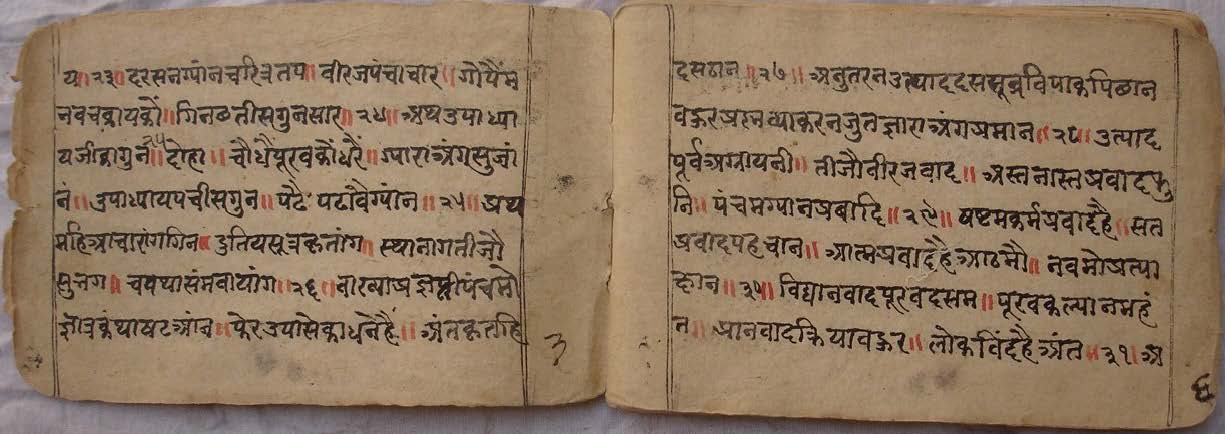 य॥२३॥दरसनग्यांनचरित्रतप॥वीरजपंचाचार॥गोपैंम
नवचकायकों॥गिनछतीसगुनसार॥२४॥अथउपाध्या
यजीकागुन२५॥दोहा॥चौधैंपूरवकौंधरैं॥ग्याराअंगसुजां
नं॥उपाध्यायपचीसगुन॥पटै पटावैग्यांन॥२५॥प्रथ
महिआचारांगगिन॥दुतियसूत्रकृतांग॥स्थानागतीजौ
सुनग॥चवथासंमवायांग॥२६॥वाख्याप्रज्ञप्तीपंचमौ
ज्ञात्रकथाषटआंन॥फेरउपासेकाधेनहैं॥अंतकृतहि
३
दसठान॥२७॥अनुतरनउत्पाददससूत्रविपाकपिछान
वहुरप्रश्नव्याकरनजुतज्ञाराअंगप्रमान॥२८॥उत्पाद
पूर्वअग्रायनी॥तीजौवीरजवाद॥अस्तनास्तप्रवादफु
नि॥पंचमग्यानप्रवादि॥२९॥षष्टमकर्मप्रवादहै॥सत
प्रवादपहचान॥आत्मप्रवादहैआठमौ॥नवमोप्रत्या
ष्यान॥३०॥विद्यानवादपूरवदसम॥पूरवकल्यानमहं
त॥प्रानवादक्रियावहुर॥लोकविंदहैअंत॥३१॥अ